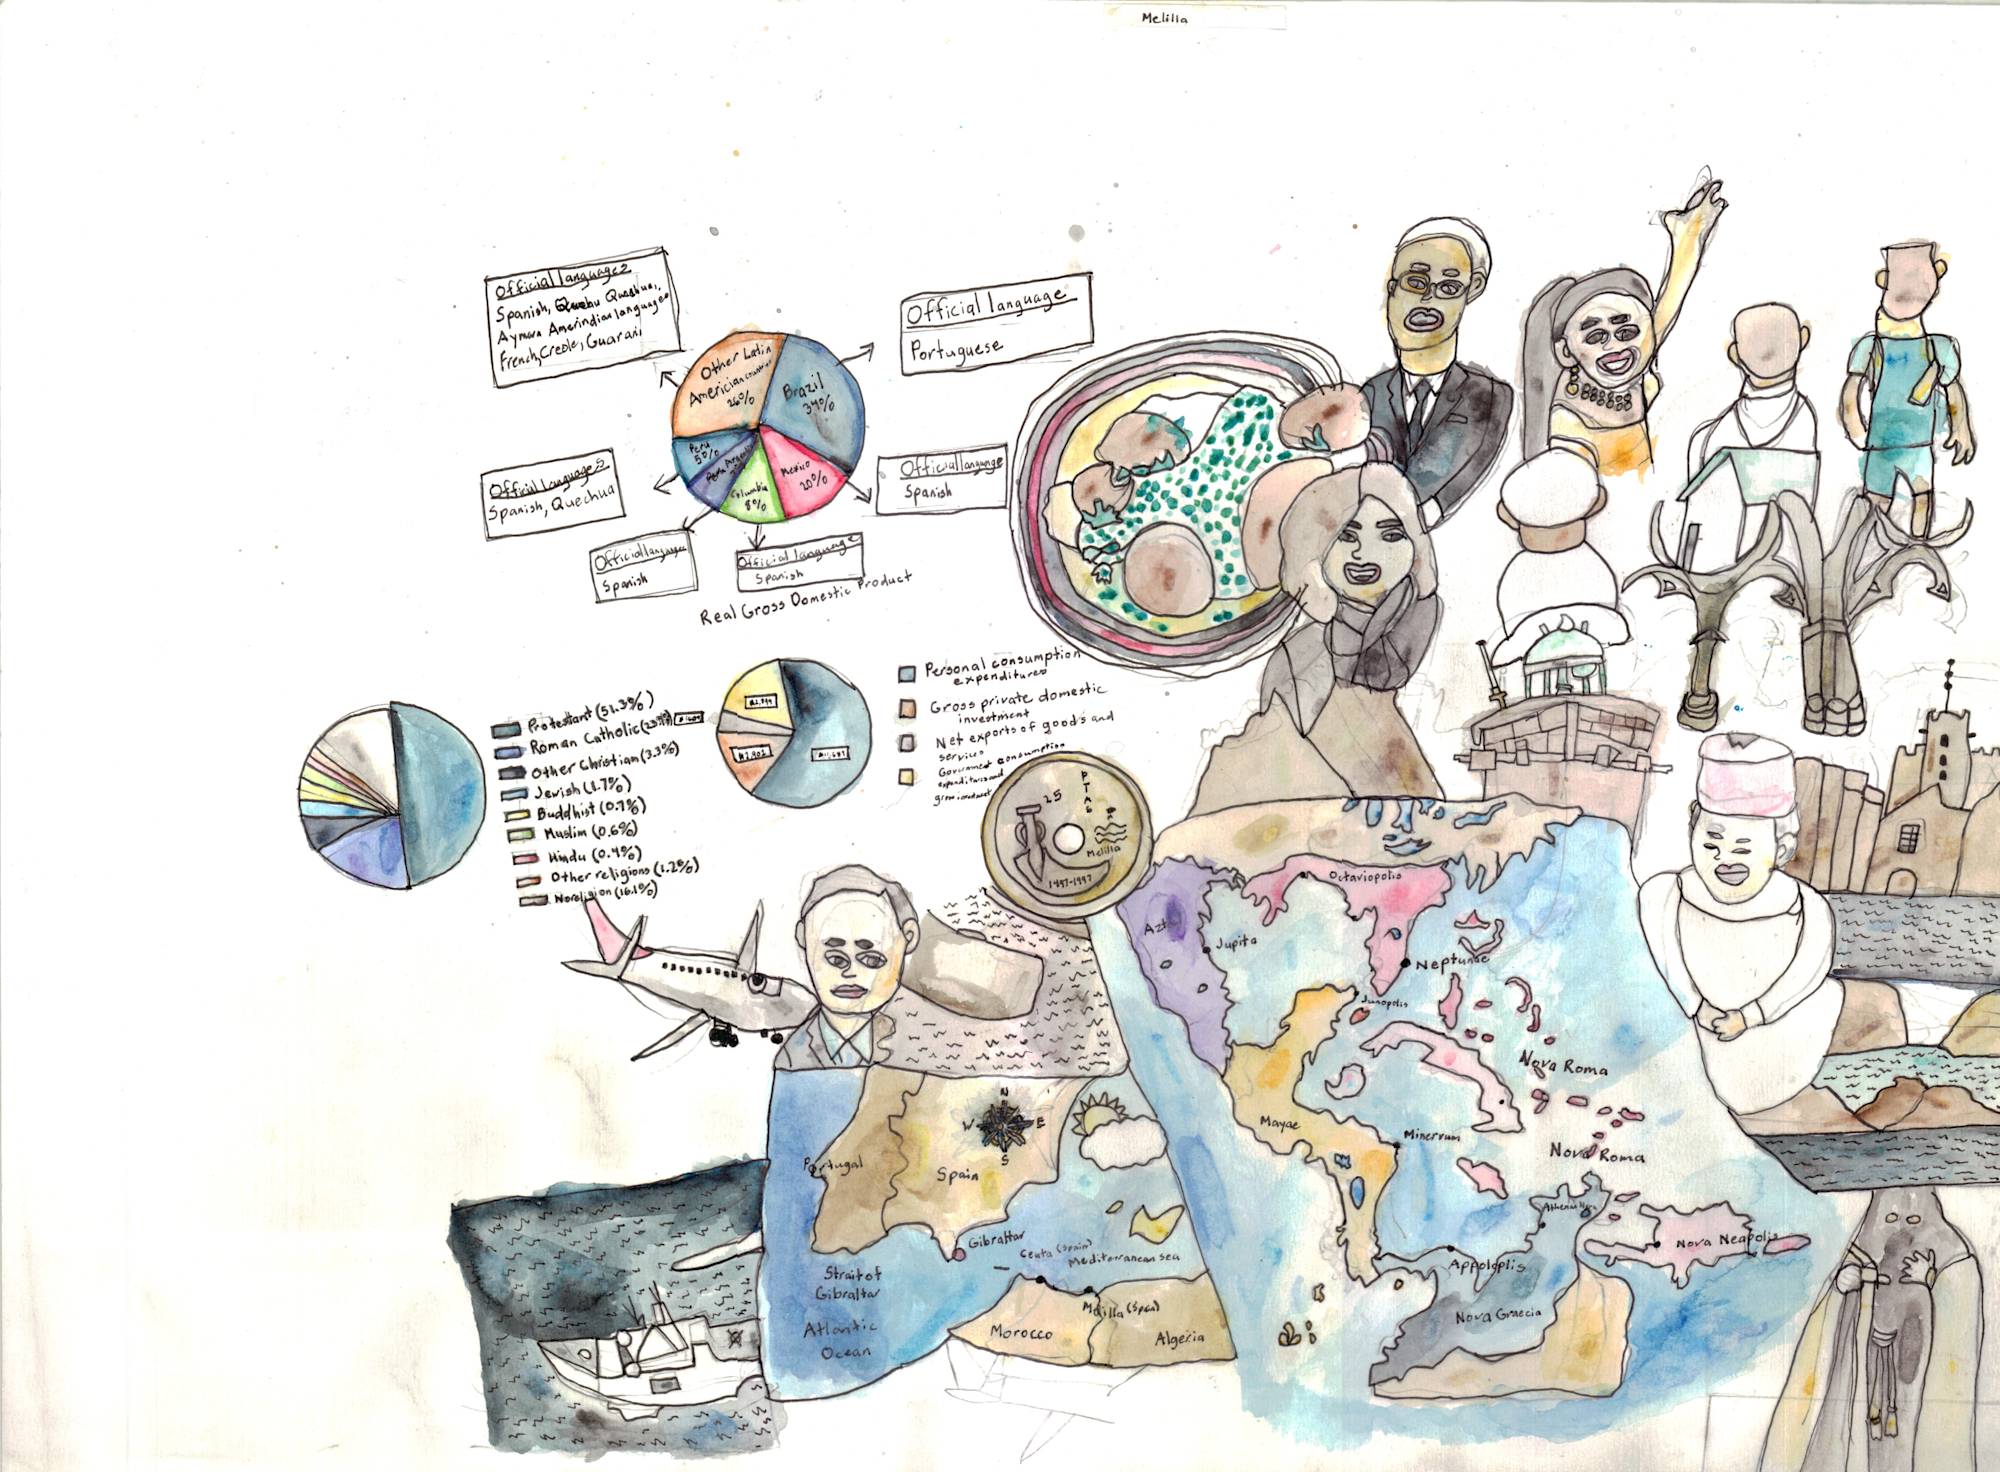 Melilla
Official languages
Spanish, Quechuai,
Aymara Amerindian languages
French, Creole, Guarani
Official language
Portuguese
Other Latin
American countries
26%
Brazil
34%
Peru
5%
Columbia
8%
Mexico
20%
Official languages
Spanish, Quechua
Official language
Spanish
Official language
Spanish
Official language
Spanish
Real Gross Domestic Product
Protestant (51.3%)
Roman Catholic
Other Christian (3.3%)
Jewish (1.7%)
Buddhist (0.7%)
Muslim (0.6%)
Hindu (0.4%)
Other religions (1.2%)
No religion (16.1%)
Personal consumption
expenditures
Gross private domestic
investment
Net exports of goods and
services
Government consumption
expenditures and
gross investment
25
PTAS
Melilla
1497-1997
Octaviopolis
Jupita
Neptunae
Junopolis
Nova Roma
Mayae
Minervum
Nova Roma
Nova Neapolis
Appoloplis
Nova Graecia
N
W
E
S
Portugal
Spain
Gibraltar
Ceuta (Spain)
Mediterranean sea
Strait of
Gibraltar
Melilla (Spain)
Atlantic
Ocean
Morocco
Algeria